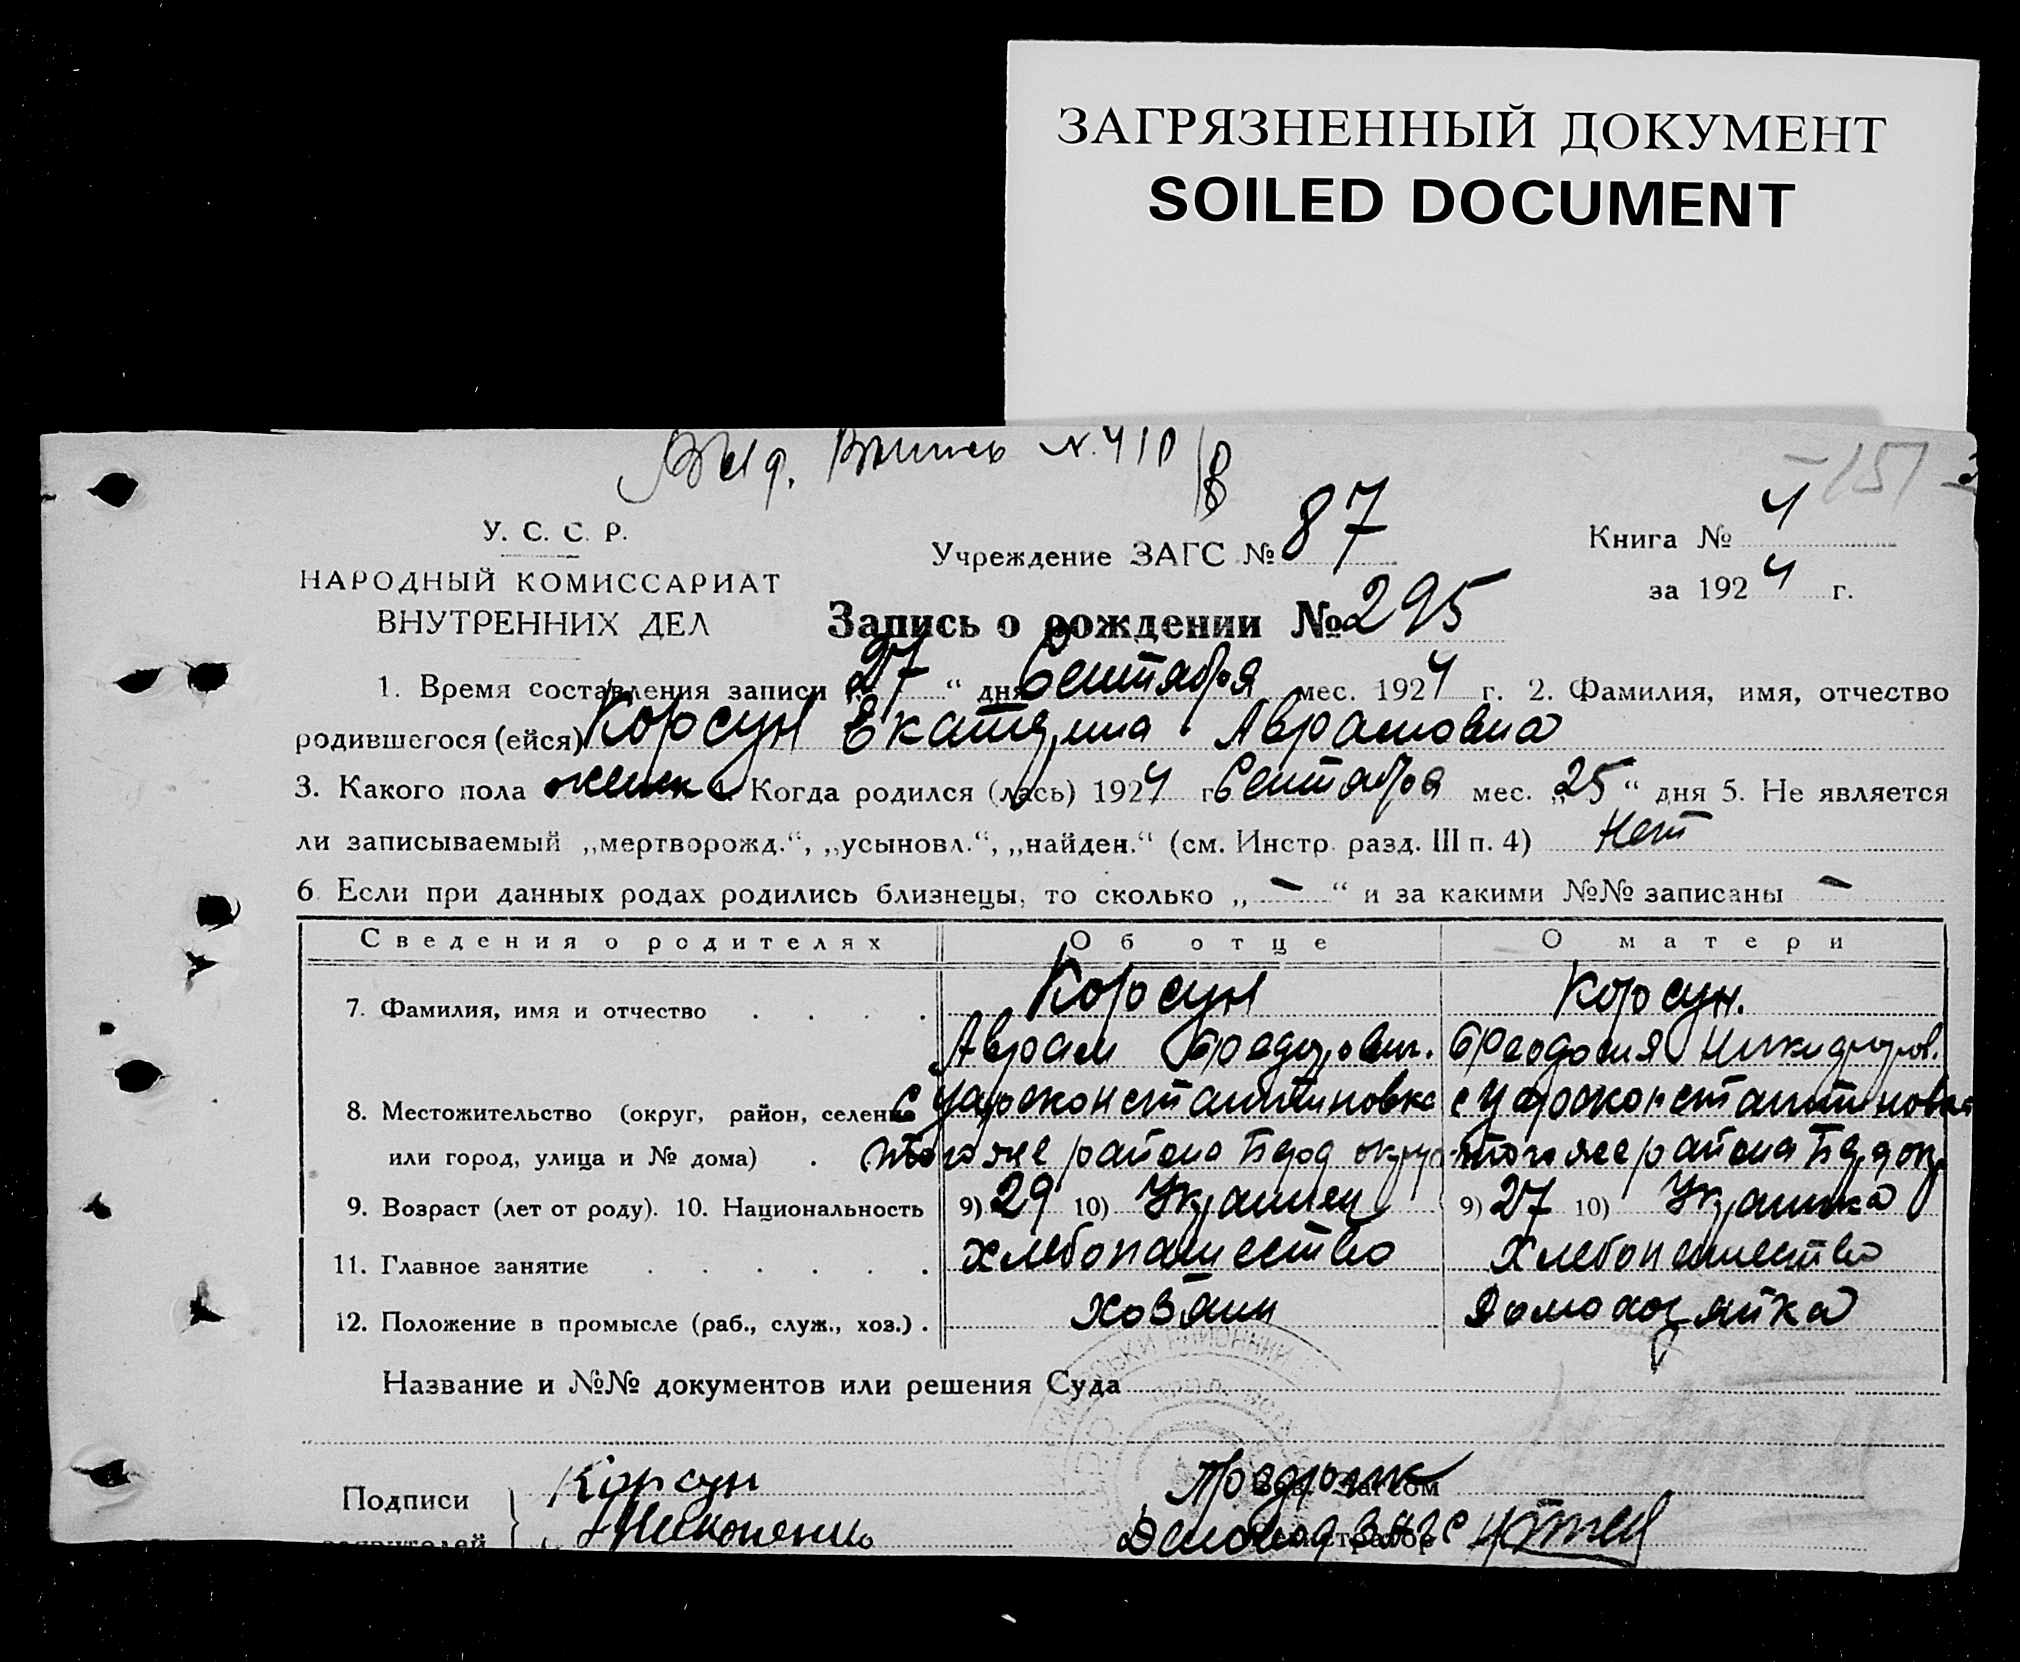 ЗАГРЯЗНЕННЫЙ ДОКУМЕНТ
SOILED DOCUMENT
N. 410
151
У. С. С. Р.
НАРОДНЫЙ КОМИССАРИАТ
ВНУТРЕННИХ ДЕЛ
Учреждение ЗАГС № 87
Книга № 4
за 1924 г.
Запись о рождении № 295
1. Время составления записи „27“ дня Сентября мес. 1924 г. 2. Фамилия, имя, отчество
родившегося (ейся) Корсун Екатерина Аврамовна
3. Какого пола женск 4. Когда родился (лась) 1924 г. Сентября мес. „25“ дня 5. Не является
ли записываемый „мертворожд.“, „усыновл.“, „найден.“ (см. Инстр. разд. III п. 4) Нет
6. Если при данных родах родились близнецы, то сколько „ — “ и за какими №№ записаны —
Сведения о родителях Об отце О матери
7. Фамилия, имя и отчество . . . . Корсун Корсун.
Аврам Федорович. Феодосия Никифоров.
8. Местожительство (округ, район, селение с Цареконстантиновка с Цареконстантиновка
или город, улица и № дома) . того же района Берд округа того же района Берд окр
9. Возраст (лет от роду). 10. Национальность 9) 29 10) Украинец 9) 27 10) Украинка
11. Главное занятие . . . . . . хлебопашество Хлебопашество
12. Положение в промысле (раб., служ., хоз.) . Хозяин Домохозяйка
Название и №№ документов или решения Суда
Подписи Корсун
заявителей Регистратор